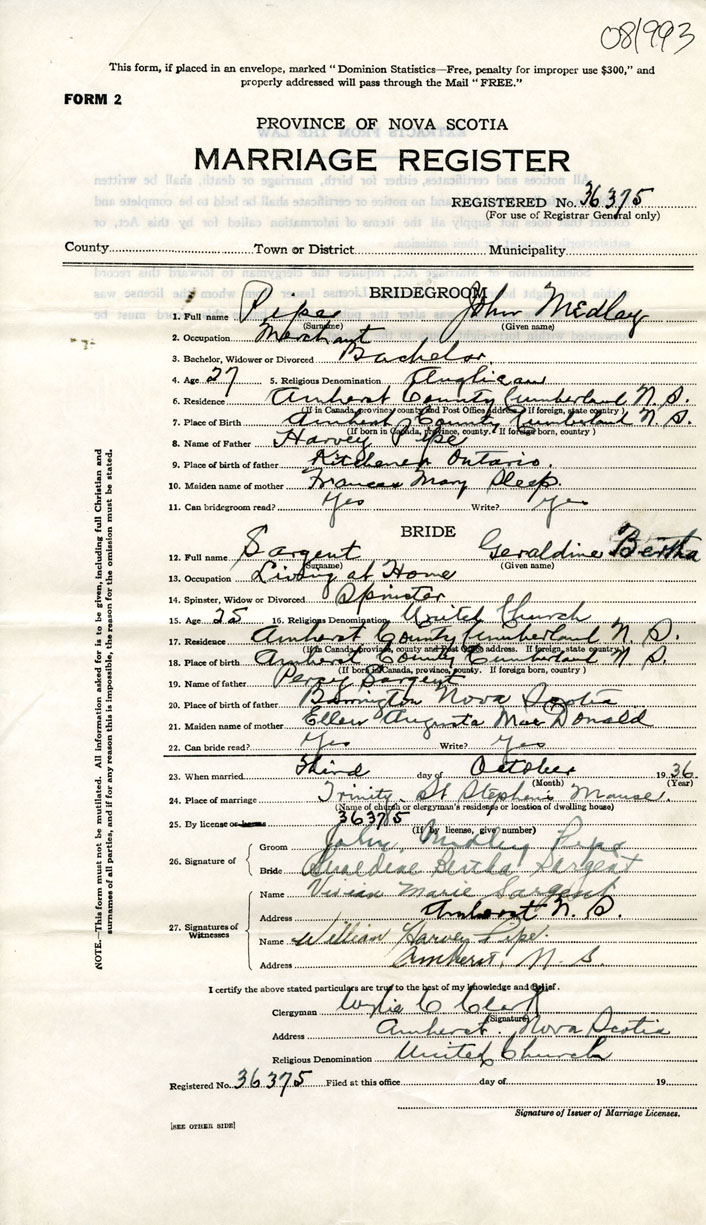 081993
This form, if placed in an envelope, marked "Dominion Statistics—Free, penalty for improper use $300," and
properly addressed will pass through the Mail "FREE."
FORM 2
PROVINCE OF NOVA SCOTIA
MARRIAGE REGISTER
REGISTERED No. 36375
(For use of Registrar General only)
County Town or District Municipality
BRIDEGROOM
1. Full name Pipe John Medley
(Surname) (Given name)
2. Occupation Merchant
3. Bachelor, Widower or Divorced Bachelor
4. Age 27 5. Religious Denomination Anglican
6. Residence Amherst County Cumberland N. S.
(If in Canada, province, county and Post Office address. If foreign, state country)
7. Place of Birth Amherst County Cumberland N. S.
(If born in Canada, province, county. If foreign born, country)
8. Name of Father Harvey Pipe
9. Place of birth of father Kitchener Ontario.
10. Maiden name of mother Frances Mary Sleep.
11. Can bridegroom read? Yes Write? Yes
BRIDE
12. Full name Sargent Geraldine Bertha
(Surname) (Given name)
13. Occupation Living at Home
14. Spinster, Widow or Divorced Spinster
15. Age 25 16. Religious Denomination United Church
17. Residence Amherst County Cumberland N. S.
(If in Canada, province, county and Post Office address. If foreign, state country)
18. Place of birth Amherst County Cumberland N. S.
(If born in Canada, province, county. If foreign born, country)
19. Name of father Percy Sargent
20. Place of birth of father Barrington Nova Scotia
21. Maiden name of mother Ellen Augusta MacDonald
22. Can bride read? Yes Write? Yes
23. When married Third day of October 1936
(Month) (Year)
24. Place of marriage Trinity St Stephen's Manse.
(Name of church or clergyman's residence or location of dwelling house)
25. By license or banns 36375
(If by license, give number)
26. Signature of
Groom John Medley Pipe
Bride Geraldine Bertha Sargent
27. Signatures of Witnesses
Name Vivian Marie Sargent
Address Amherst N. S.
Name William Harvey Pipe.
Address Amherst, N. S.
I certify the above stated particulars are true to the best of my knowledge and belief.
Clergyman Wylie C Clark
(Signature)
Address Amherst, Nova Scotia
Religious Denomination United Church
Registered No. 36375 Filed at this office day of 19
Signature of Issuer of Marriage Licenses.
[SEE OTHER SIDE]
NOTE.—This form must not be mutilated. All information asked for is to be given, including full Christian and
surnames of all parties, and if for any reason this is impossible, the reason for the omission must be stated.